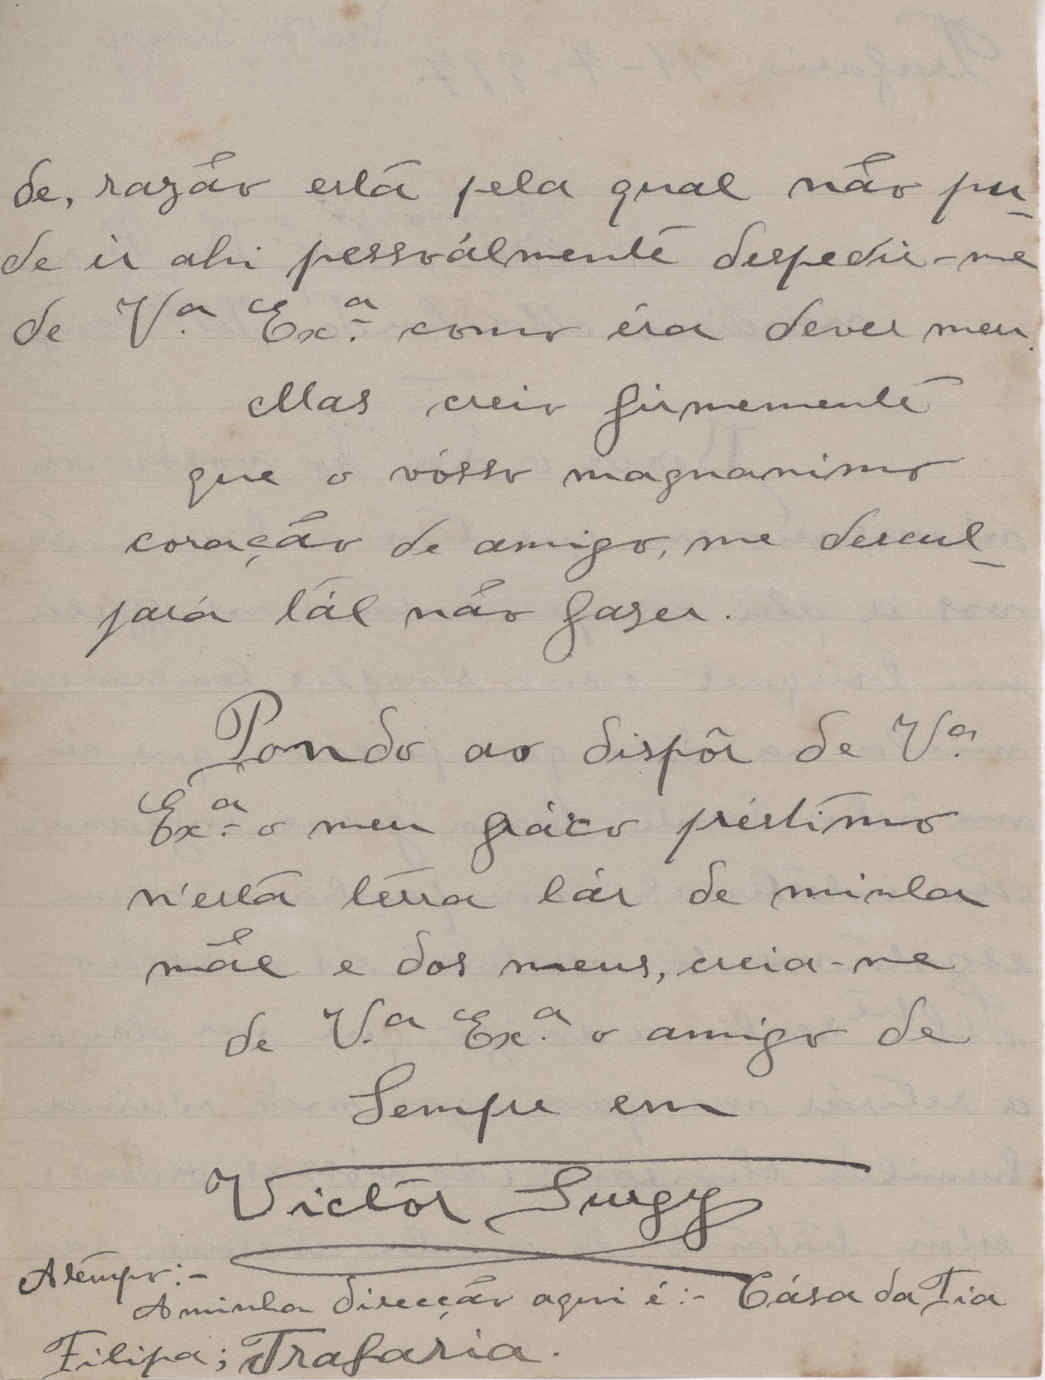 de, razão está pela qual não pu-
de ir ahi pessoálmente despedir-me
de V.ª Ex.ª como éra dever meu.
Mas creio firmemente
que o vósso magnanimo
coração de amigo, me descul-
pará tál não faser.
Pondo ao dispôr de V.ª
Ex.ª o meu fráco préstimo
n'esta térra lár de minha
mãe e dos meus, creia-me
de V.ª Ex.ª o amigo de
Sempre em
Victôr Surgy
Atémpo:-
A minha direcção aqui é:- Cása da Tia
Filipa; Trafaria.